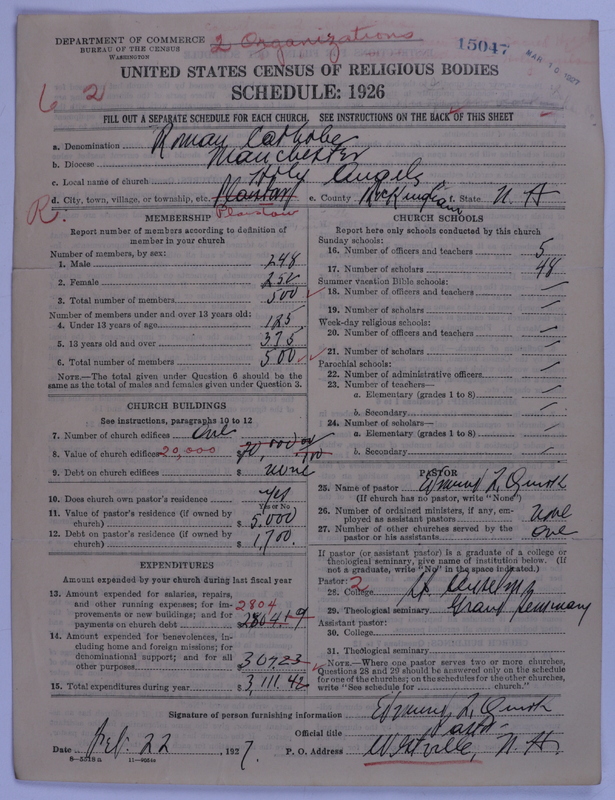 2 Organizations
DEPARTMENT OF COMMERCE
BUREAU OF THE CENSUS
WASHINGTON
15047
MAR 10 1927
UNITED STATES CENSUS OF RELIGIOUS BODIES
SCHEDULE: 1926
6 2
FILL OUT A SEPARATE SCHEDULE FOR EACH CHURCH. SEE INSTRUCTIONS ON THE BACK OF THIS SHEET
a. Denomination Roman Catholic
b. Diocese Manchester
c. Local name of church Holy Angels
d. City, town, village, or township, etc. Plaistow e. County Rockingham f. State N. H
R. Plaistow
MEMBERSHIP
Report number of members according to definition of
member in your church
Number of members, by sex:
1. Male 248
2. Female 252
3. Total number of members 500
Number of members under and over 13 years old:
4. Under 13 years of age 125
5. 13 years old and over 375
6. Total number of members 500
NOTE.—The total given under Question 6 should be the
same as the total of males and females given under Question 3.
CHURCH BUILDINGS
See instructions, paragraphs 10 to 12
7. Number of church edifices one
8. Value of church edifices 20,000 $ 20,000 00/100
9. Debt on church edifices $ none
10. Does church own pastor's residence yes
Yes or No
11. Value of pastor's residence (if owned by
church) $ 5,000
12. Debt on pastor's residence (if owned by
church) $ 1,700.
EXPENDITURES
Amount expended by your church during last fiscal year
13. Amount expended for salaries, repairs,
and other running expenses; for im-
provements or new buildings; and for
payments on church debt $ 2804.19
2804
14. Amount expended for benevolences, in-
cluding home and foreign missions; for
denominational support; and for all
other purposes $ 307.23
15. Total expenditures during year $ 3,111.42
CHURCH SCHOOLS
Report here only schools conducted by this church
Sunday schools:
16. Number of officers and teachers 5
17. Number of scholars 48
Summer vacation Bible schools:
18. Number of officers and teachers
19. Number of scholars
Week-day religious schools:
20. Number of officers and teachers
21. Number of scholars
Parochial schools:
22. Number of administrative officers
23. Number of teachers—
a. Elementary (grades 1 to 8)
b. Secondary
24. Number of scholars—
a. Elementary (grades 1 to 8)
b. Secondary
PASTOR
25. Name of pastor Edmund F. Quirk
(If church has no pastor, write "None")
26. Number of ordained ministers, if any, em-
ployed as assistant pastors none
27. Number of other churches served by the
pastor or his assistants one
If pastor (or assistant pastor) is a graduate of a college or
theological seminary, give name of institution below. (If
not a graduate, write "No" in the space indicated.)
Pastor: 2
28. College St Anselm's
29. Theological seminary Grand Seminary
Assistant pastor:
30. College
31. Theological seminary
NOTE.—Where one pastor serves two or more churches,
Questions 28 and 29 should be answered only on the schedule
for one of the churches; on the schedules for the other churches,
write "See schedule for church."
Signature of person furnishing information Edmund F. Quirk
Official title Pastor
Date Feb. 22, 1927. P. O. Address Westville, N. H.
8—5518 a 11—9051a